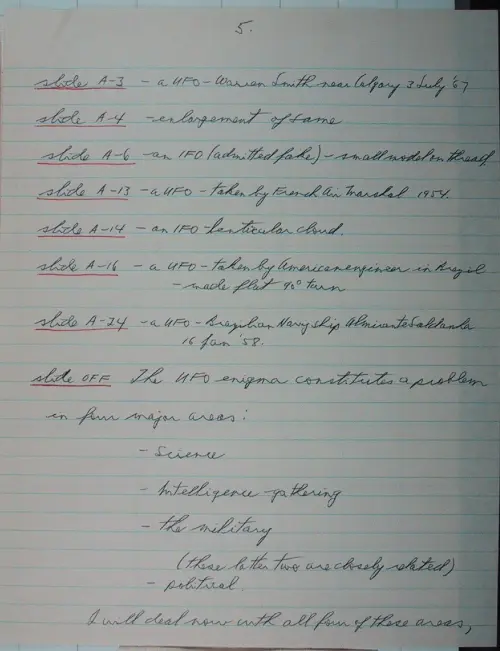 5.
slide A-3 - a UFO - Warren Smith near Calgary 3 July '67
slide A-4 - enlargement of same
slide A-6 - an IFO (admitted fake) - small model on thread
slide A-13 - a UFO - taken by French Air Marshal 1954.
slide A-14 - an IFO - lenticular cloud.
slide A-16 - a UFO - taken by American engineer in Brazil
- made flat 90° turn
slide A-24 - a UFO - Brazilian Navy ship Almirante Saldanha
16 Jan '58.
slide OFF The UFO enigma constitutes a problem
in four major areas:
- Science
- Intelligence-gathering
- the military
(these latter two are closely related)
- political.
I will deal now with all four of these areas,